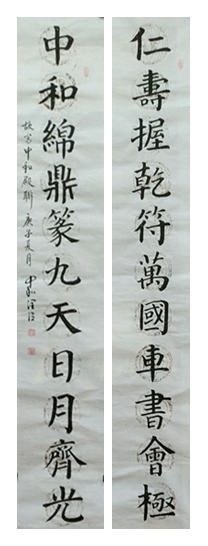 仁壽握乾符萬國車書會極
中和綿鼎篆九天日月齊光
故宮中和殿聯 庚子夏月